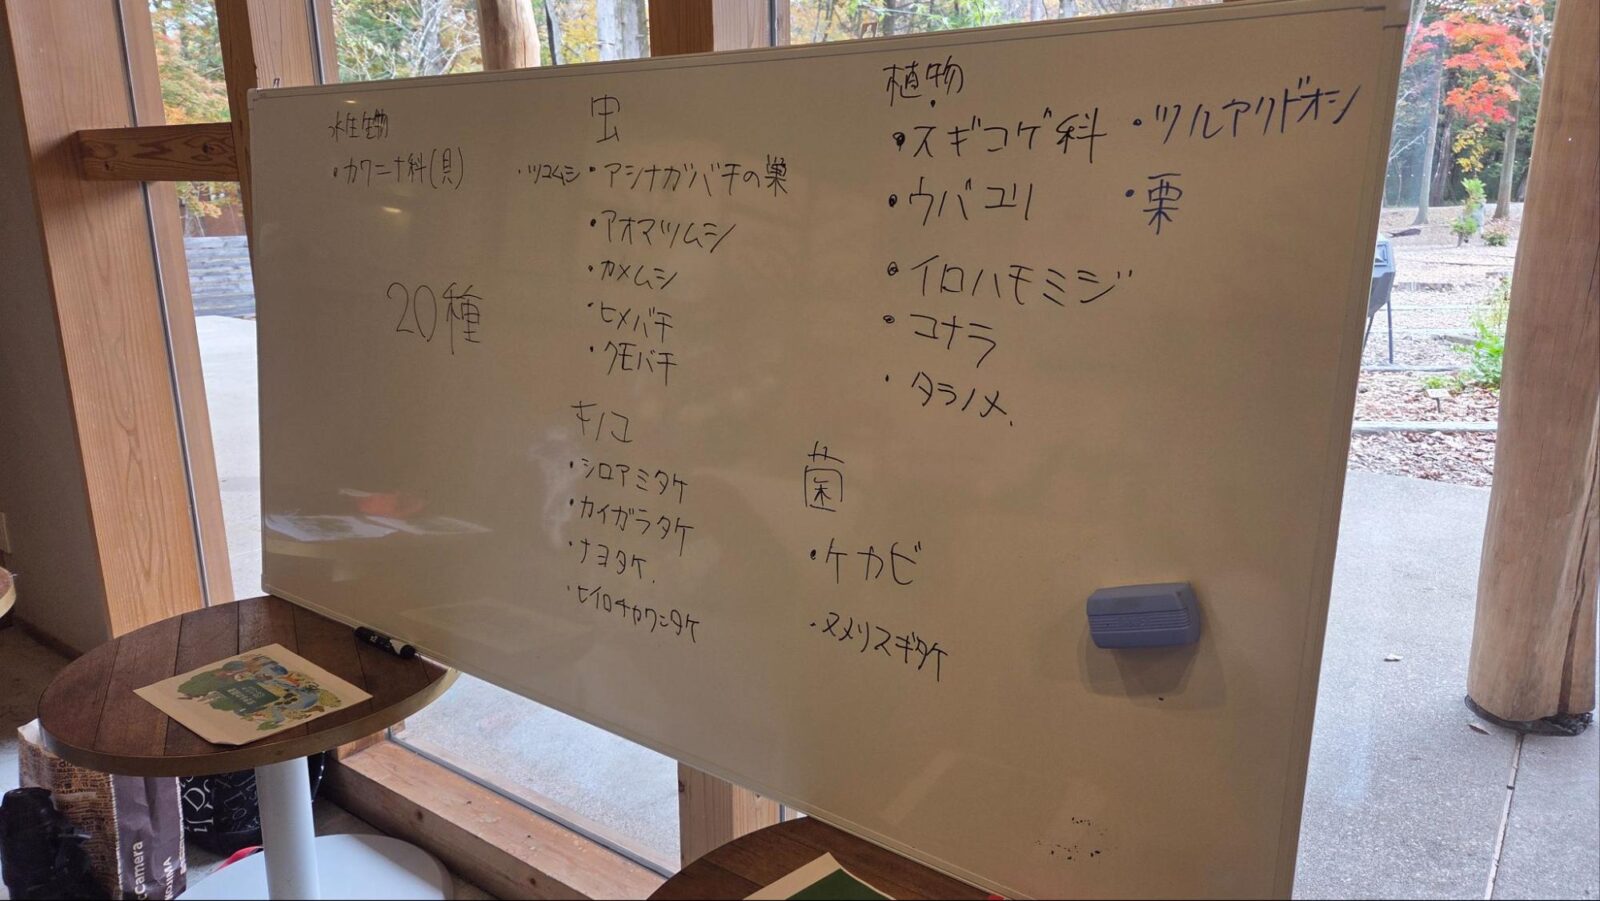 水生生物
・カワニナ科(貝)
20種
虫
・ツユムシ
・アシナガバチの巣
・アオマツムシ
・カメムシ
・ヒメバチ
・クモバチ
キノコ
・シロアミタケ
・カイガラタケ
・ナヨタケ.
・ヒイロチャワンタケ
植物
・スギコゲ科
・ウバユリ
・イロハモミジ
・コナラ
・タラノメ.
・ツルアリドオシ
・栗
菌
・ケカビ
・ヌメリスギタケ
camera